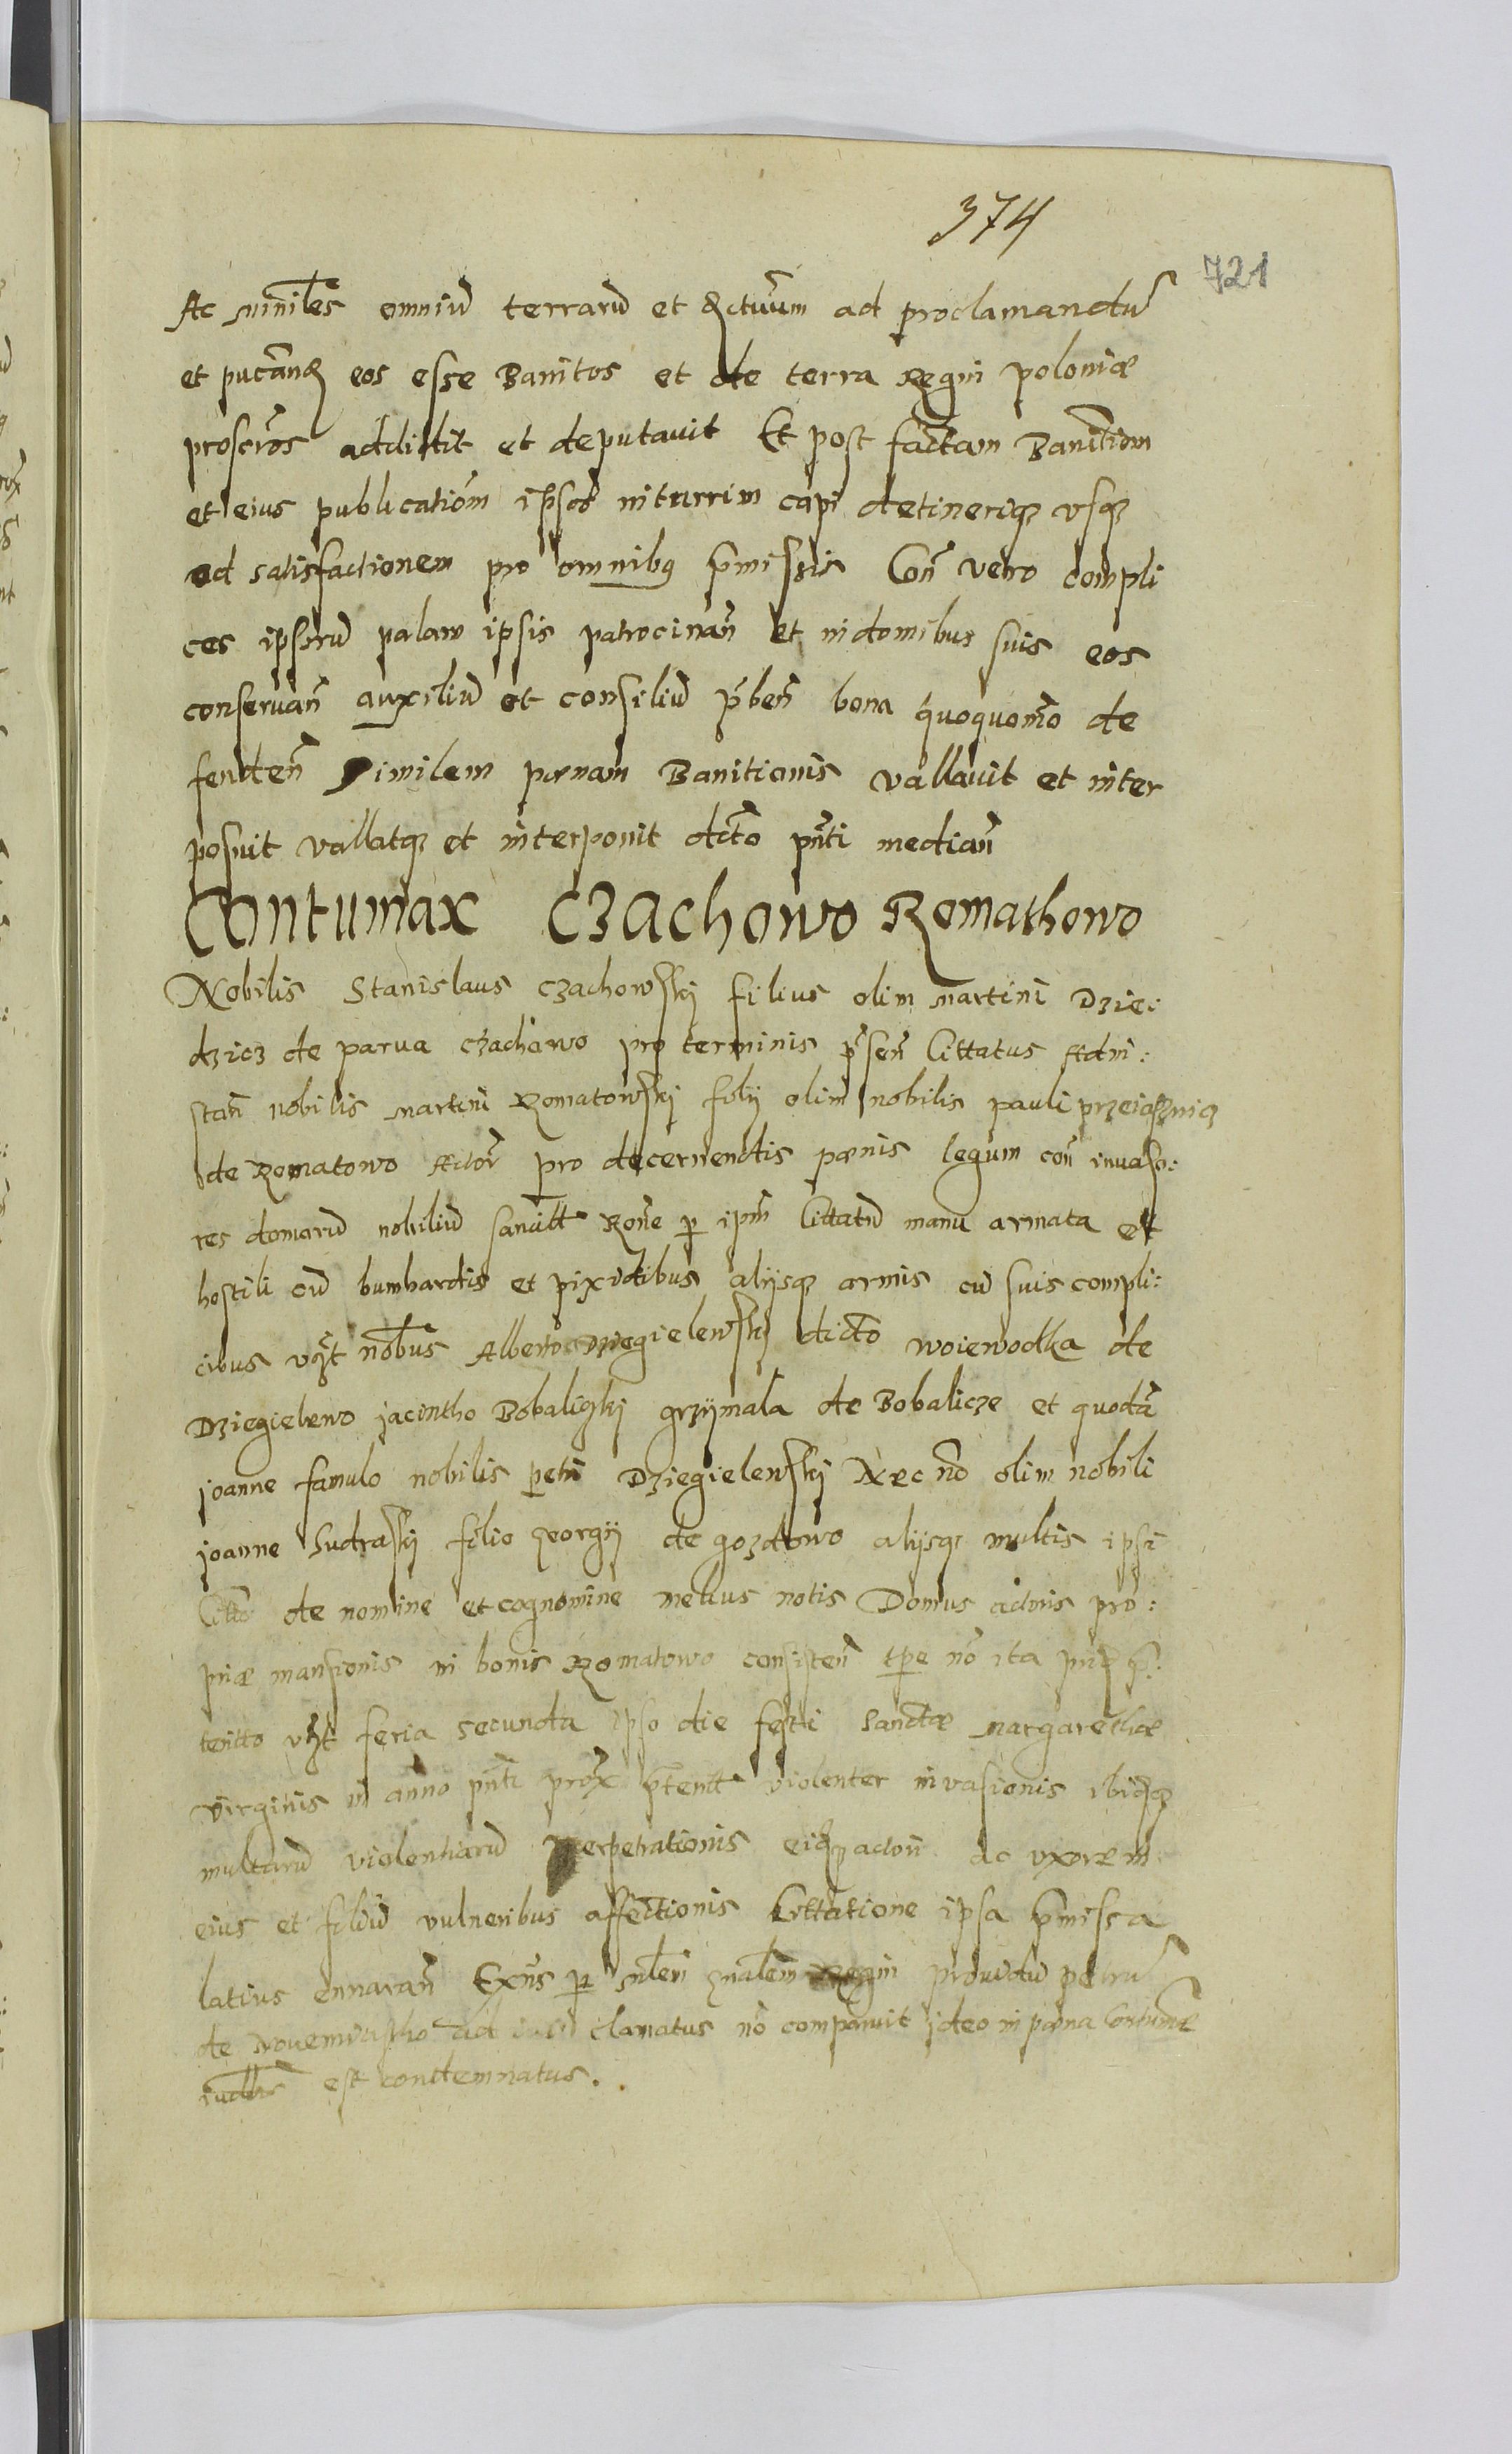 374
721
Ac ministeriales omniũ terrarũ et Districtuum ad proclamandũ
et publicand eos esse Banitos et de terra Regni poloniæ
proscr̃os addixit et deputauit Et post factam Banitiom
et eius publicatiõm ipsos in turrim capi detineriq, vsq,
ad satisfactionem pro omnibq p̃missis Con̄ vero compli
ces ipsorũ palam ipsis patrocinan̄ et in domibus suis eos
conseruan̄ auxiliũ et consiliũ p̃ben̄ bona quoquom̃o de
fenden̄ Similem pœnam Banitionis vallauit et inter
posuit vallatq, et interponit dcto pn̄ti median̄
Contumax Czachowo Romathowo
Nobilis Stanislaus Czachowskj filius olim martini Dzie:
dzicz de parua Czachowo pro terminis p̃sen̄ Cittatus Ad in:
stan̄ nobilis martini Romatowskj filij olim nobilis pauli
de Romatowo Actor̃ pro decernendis pœnis legum con̄ inuaso:
res domorũ nobiliũ sancitt Rõne p ipm̄ Cittatũ manu armata et
hostili cũ bumbardis et pixidibus alijsq, armis cũ suis compli:
cibus vz̃t nobus Alberto Dziegielewskj dicto woiewodka de
Dziegielewo jacintho Bobaliczkj grzijmala de Bobalicze et quodã
joanne famulo nobilis petri Dziegielewskj Nec nõ olim nobili
joanne Sudraskj filio georgij de gozdowo alijsq, multis ipsi
Citto de nomine et cognomine melius notis Domus actoris pro:
priæ mansionis in bonis Romatowo consisten̄ tpe nõ ita
teritto vz̃t feria secunda ipso die festi Sanctæ margarethæ
virginis in anno pn̄ti prox p̃teritt violenter inuasionis ibiq,
multarũ violentiarũ perpetrationis eiq, actori ac vxorem
eius et filiũ vulneribus affectionis Cittatione ipsa p̃missa
latius ennaran̄ Exn̄s p Regni prouidũ petrũ
de ad clamatus nõ comparuit ideo in pœna Contumæ
est condemnatus.